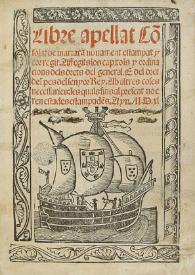 Libre apellat Cō
solat de mar: ara nouament estampat y
corregit. Affegits los capitols y ordina
cions dels drets del general. E del dret
del pes del senyor Rey. Ab altres coses
necessaries: les quals fins al present no e
ren estades estampades. Any. M.D.xl